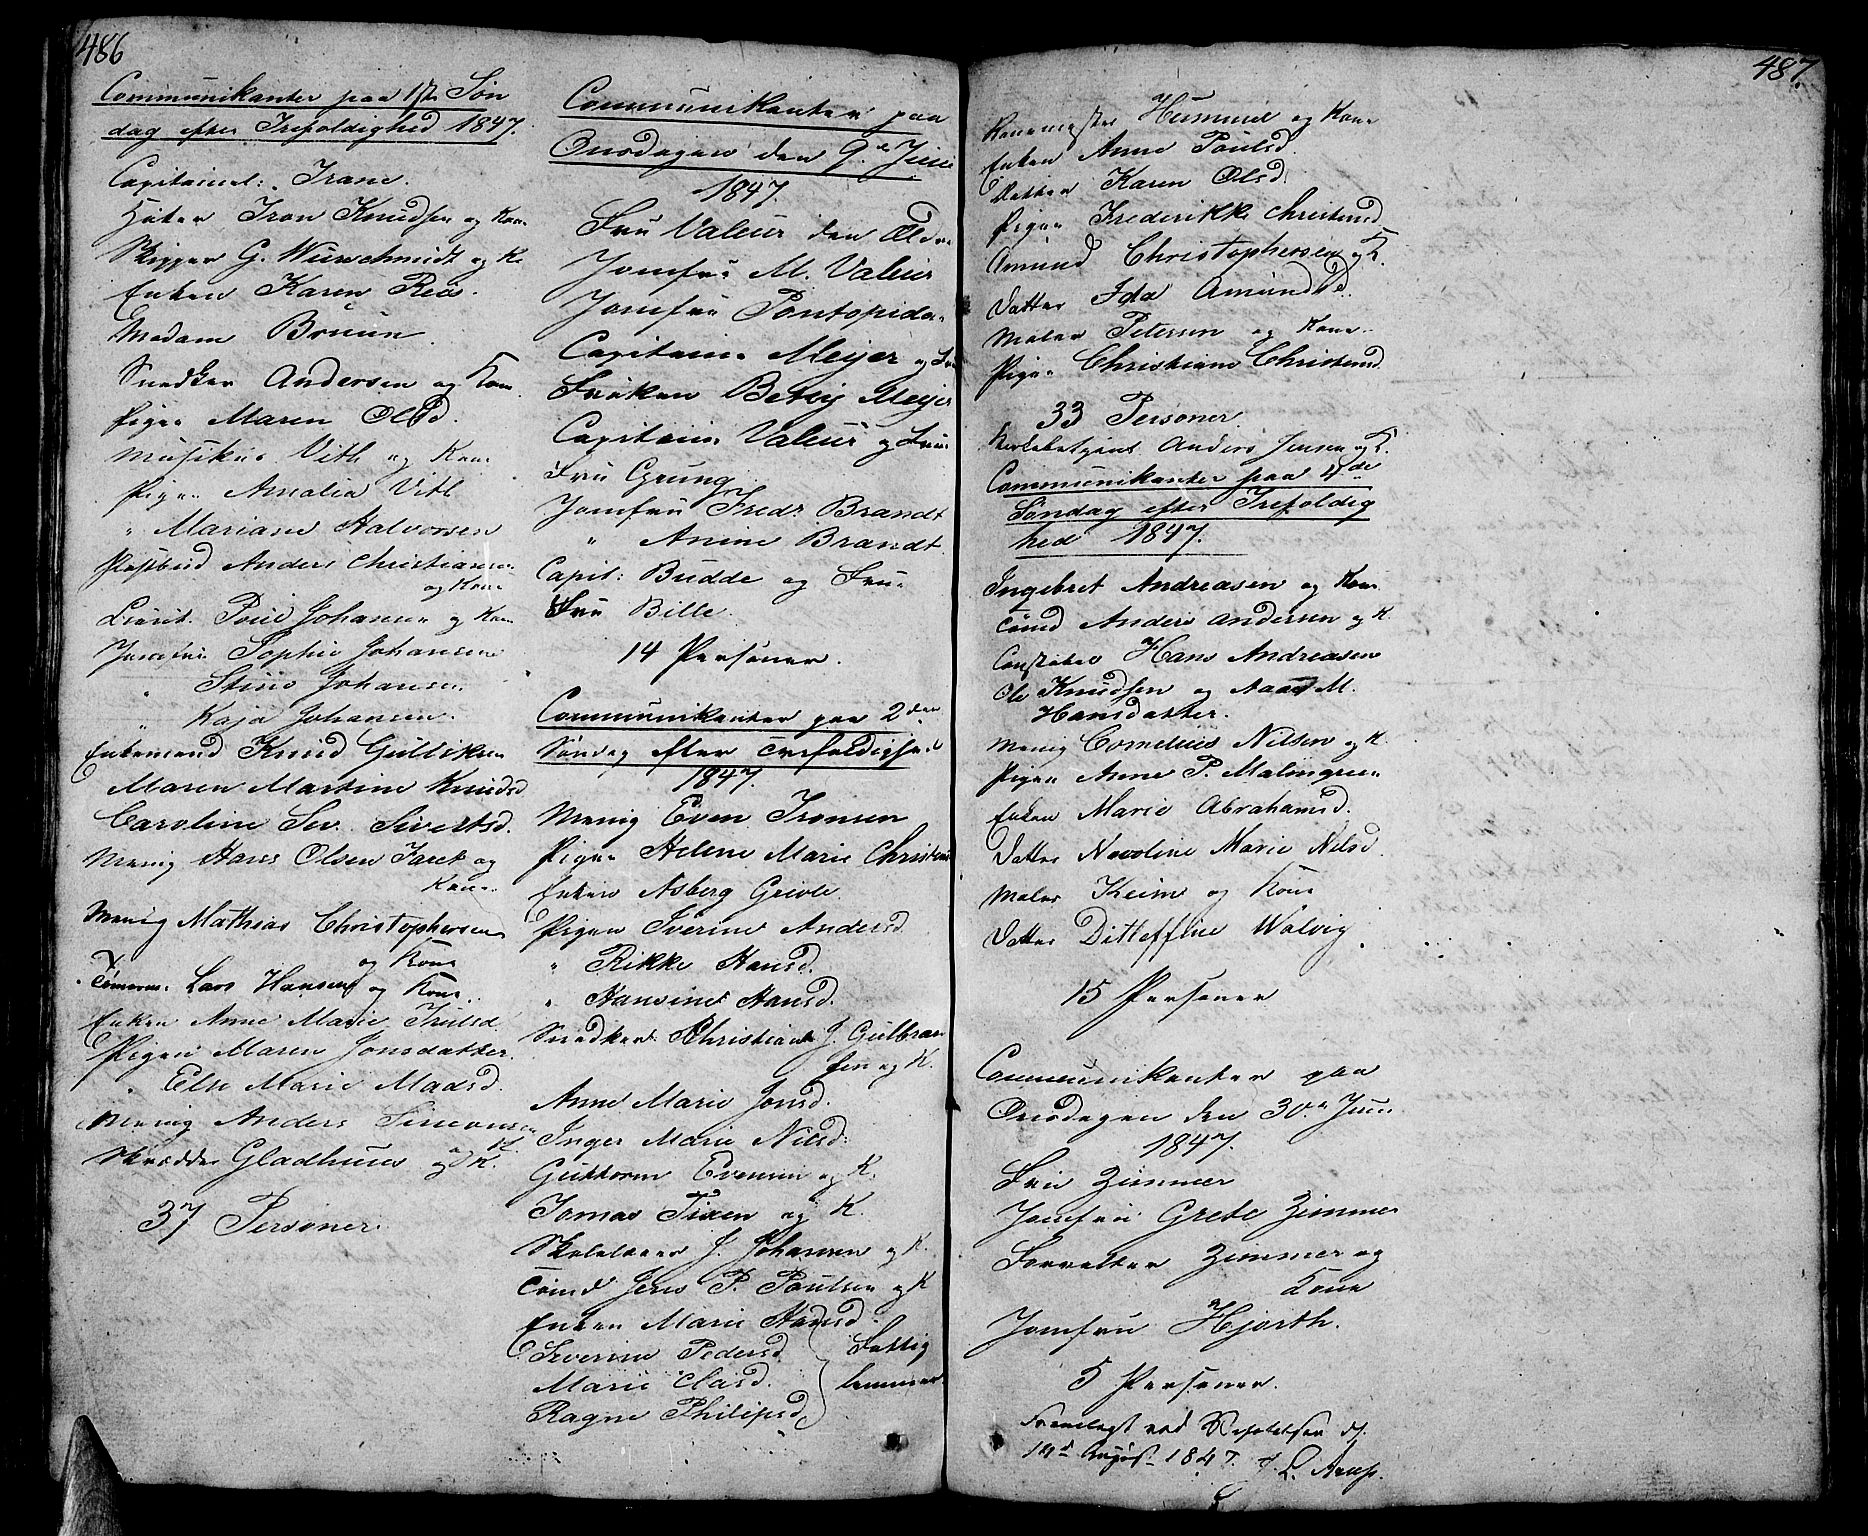 486
Communikanter paa 1ste Søn
dag efter Trefoldighed 1847.
Capitainel: Trane.
Iron Knudsen og Kone
Skipper G. Wurschmidt og K.
Enken Karen Reas.
Madam Bruun.
Snedker Andersen og Kone
Pigen Maren Olsd.
Musikus Vith og Kone
Pigen Amalia Vith
" Mariane Halvorsen
Postbud Anders Christiansen
og Kone
Lieut. Poul Johansen og Kone
Jomfru Sophie Johansen
" Stine Johansen
" Kaja Johansen.
Enkemand Knud Gulliksen
Maren Martine Knudsd
Caroline Sev. Sivertsd.
Menig Hans Olsen Jaret og
Kone
Menig Mathias Christophersen
og Kone
Tømrm. Lars Hansen og Kone
Enken Anne Marie Trulsd.
Pigen Maren Jonsdatter.
" Else Marie Maasd.
Menig Anders Simonsen
Skrædder Gladhuus og K.
37 Personer.
Communikanter paa
Onsdagen den 9de Juni
1847.
Fru Valeur den Ældre
Jomfru M. Valeur
Jomfru Pontopidan
Capitain Meyer og Fru
Frøken Betsy Meyer
Capitain Valeur og Fru
Fru Grung
Jomfru Fredr. Brandt
" Anine Brandt
Capit: Budde og Frue
Fru Bille.
14 Personer.
Communikanter paa 2den
Søndag efter Trefoldighed
1847.
Menig Even Tronsen
Pigen Helene Marie Christensd
Enken Asberg Greve
Pigen Iverine Andersd
" Rikke Hansd.
" Hansine Hansd.
Snedker Christian J. Gulbran
sen og K.
Anne Marie Jonsd.
Inger Marie Nilsd.
Guttorm Evensen og K.
Tomas Tixen og K.
Skolelærer J. Johansen og K.
Tømd Jens P. Paulsen og K
Enken Marie Hansd.
Severine Pedersd. Fattig
Marie Olasd. lemmer
Ragne Philipsd
487.
Hummel og Kone
Enken Anne Poulsd.
Datter Karen Olsd.
Pigen Frederikke Christensd
Amund Christophersen og K.
Datter Ida Amundsd.
Maler Petersen og Kone
Pigen Christiane Christensd
33 Personer.
Anders Jensen og K.
Communikanter paa 4de
Søndag efter Trefoldig
hed 1847.
Ingebret Andreasen og Kone
Tømd Anders Andersen og K.
Constabel Hans Andreasen
Ole Knudsen og M.
Hansdatter.
Menig Cornelius Nilsen og K.
Pigen Anne P. Malmgreen
Enken Marie Abrahamsd.
Datter Nicoline Marie Nilsd.
Maler Keim og Kone
Datter Ditleffine Walvig
15 Personer
Communikanter paa
Onsdagen den 30te Juni
1847.
Fru Zimmer
Jomfru Grete Zimmer
Forvalter Zimmer og
Kone
Jomfru Hjorth.
5 Personer.
Fremlagt ved Visitatsen d.
14de August 1847. J. L. Arup.